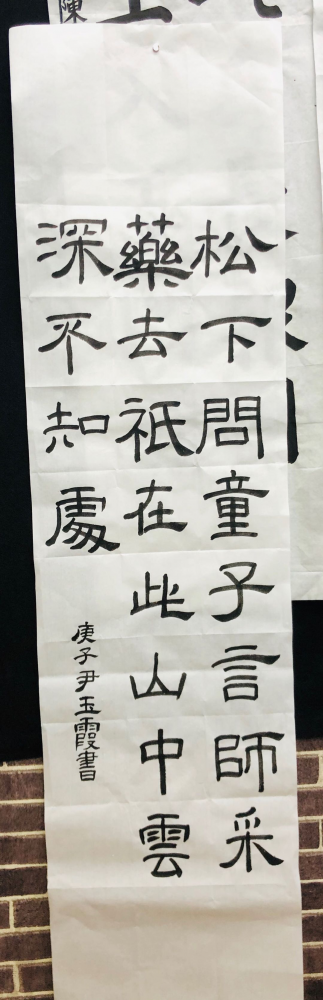 松下問童子言師采
藥去祇在此山中雲
深不知處
庚子尹玉霞書
陳